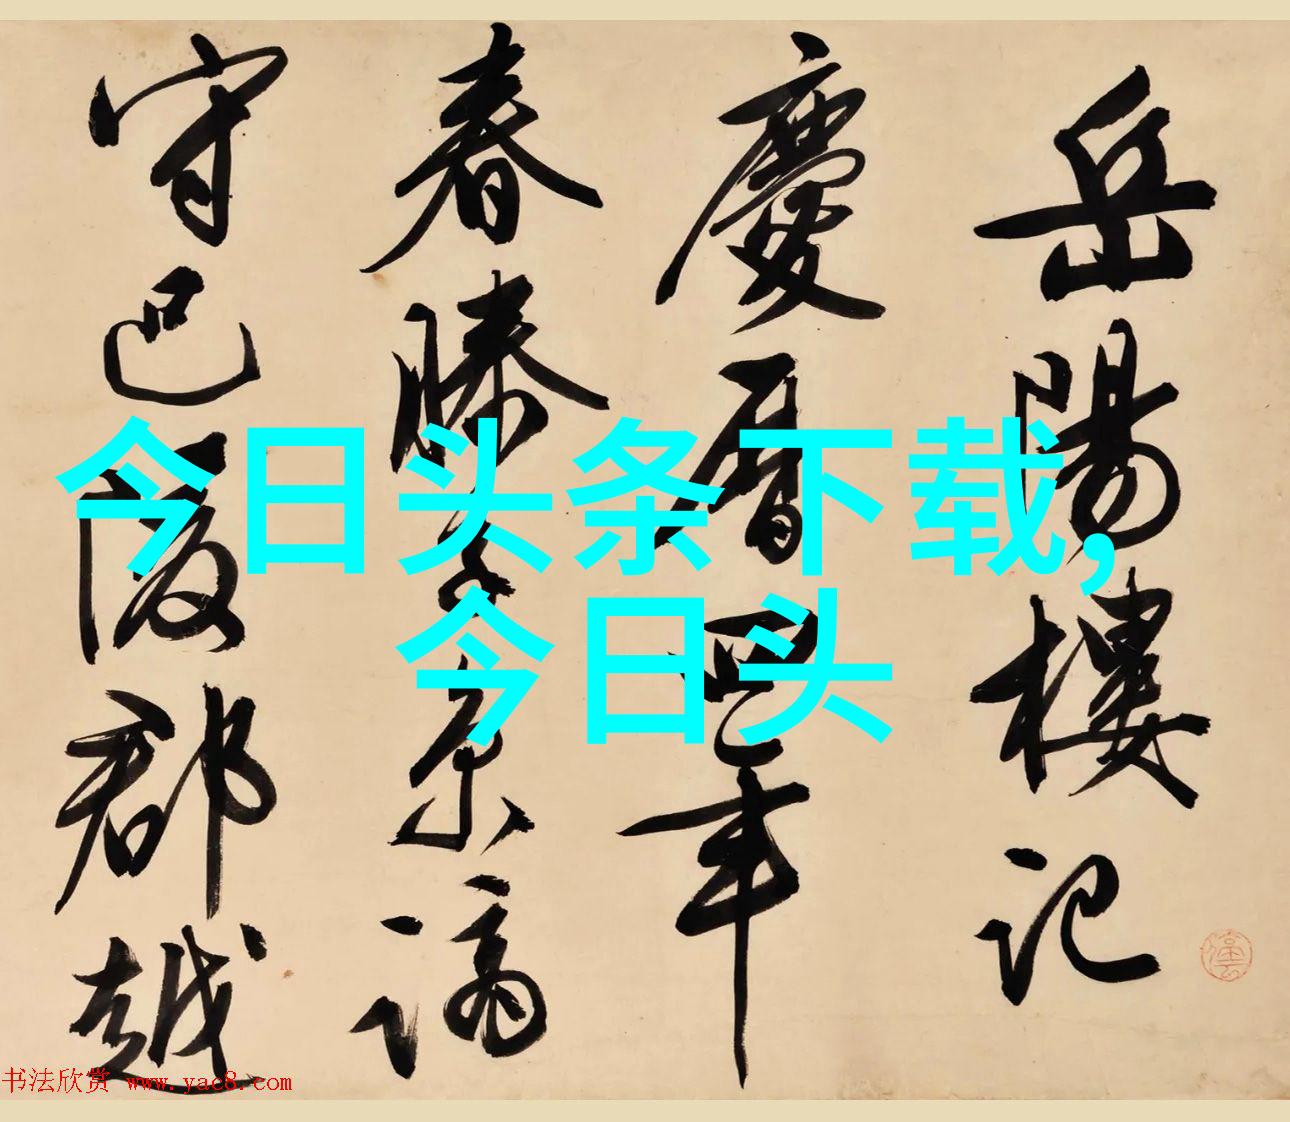 岳陽樓記
慶曆四年
春滕子京謫
守巴陵郡越
今日头条下载,
今日头
书法欣赏 www.yac8.com